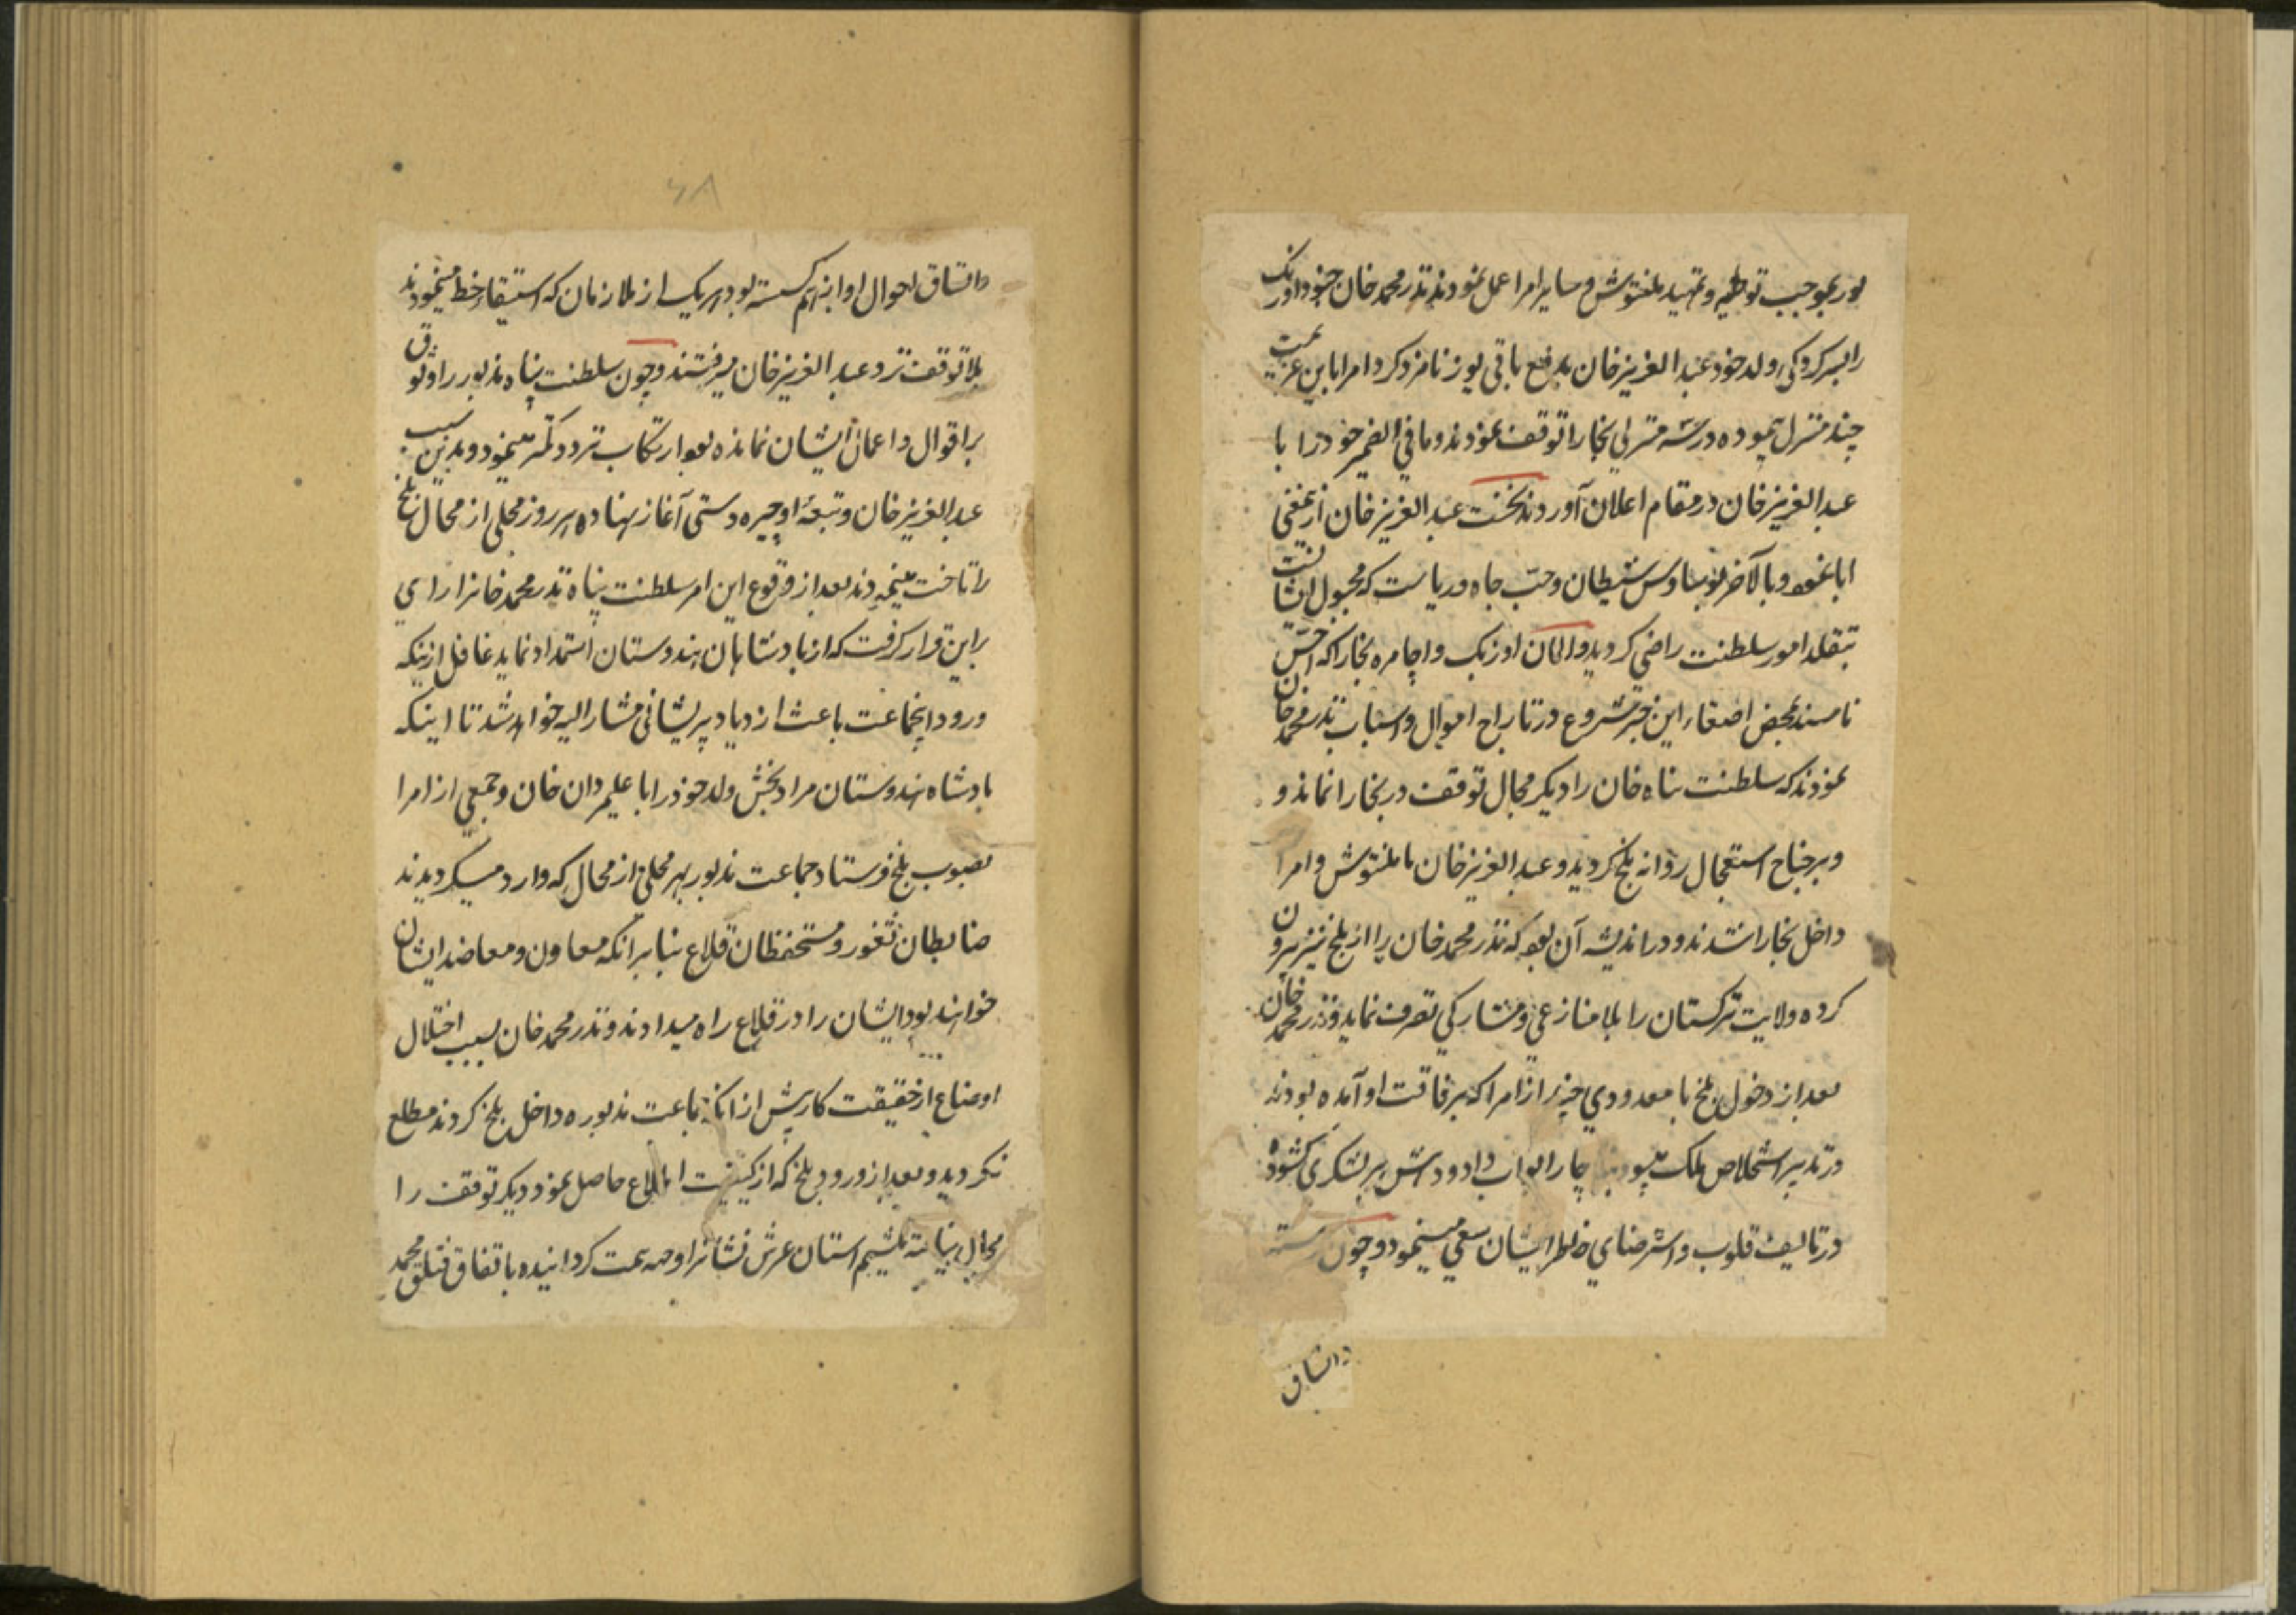 بور بموجب توطیه و تمهید یلنتوش و سایر امرا عمل نمودند نذر محمد خان جنود اوزبک
را بسرکردگی ولد خود عبد العزیز خان بدفع باقی یوز نامزد کرد امرا باین عزیمت
چند منزل پیموده در سه منزلی بخارا توقف نمودند و ما فی الضمیر خود را با
عبد العزیز خان در مقام اعلان آوردند نخست عبد العزیز خان ازین معنی
ابا نمود و بالآخر بوساوس شیطان و حب جاه و ریاست که مجبول انسانست
بتقلد امور سلطنت راضی کردید و المان اوزبک و اجامره بخارا که اخس
ناسند بمحض اصغاء این خبر شروع در تاراج اموال و اسباب نذر محمد خان
نمودند که سلطنت پناه خان را دیکر مجال توقف در بخارا نماند و
و بر جناح استعجال روانه بلخ کردید و عبد العزیز خان با یلنتوش و امرا
داخل بخارا شدند و در اندیشه آن بود که نذر محمد خان را از بلخ نیز بیرون
کرده ولایت ترکستان را بلا منازعی و مشارکی تصرف نماید و نذر محمد خان
بعد از دخول بلخ با معدودی چند از امرا که برفاقت او آمده بودند
در تدبیر استخلاص ملک میبود چار ابواب داد و دهش بر لشکری کشوده
در تالیف قلوب و استرضای خاطر ایشان سعی مینمود و چون رشته
و اتساق
و اتساق احوال او از هم کسسته بود هر یک از ملازمان که استیفاء حظ مینمودند
بلا توقف نزد عبد العزیز خان میرفتند و چون سلطنت پناه مذبور را وثوق
بر اقوال و اعمال ایشان نمانده بود ارتکاب تردد کمتر مینمود و بدین سبب
عبد العزیز خان و تبعهٔ او چیره دستی آغاز نهاده هر روز محلی از محال بلخ
را تاخت مینمودند بعد از وقوع این امر سلطنت پناه نذر محمد خانرا رای
بر این قرار کرفت که از پادشاهان هندوستان استمداد نماید غافل ازینکه
ورود انجماعت باعث ازدیاد پریشانی مشار الیه خواهد شد تا اینکه
پادشاه هندوستان مراد بخش ولد خود را با علیمردان خان و جمعی از امرا
بصوب بلخ فرستاد جماعت مذبور بهر محلی از محال که وارد میکردیدند
ضابطان ثغور و مستحفظان قلاع بنا بر انکه معاون و معاضد ایشان
خواهند بود ایشان را در قلاع راه میدادند و نذر محمد خان بسبب اختلال
اوضاع از حقیقت کار پیش از انکه جماعت مذبوره داخل بلخ کردند مطلع
نکردید و بعد از ورود بلخ که از کیفیت اطلاع حاصل نمود دیکر توقف را
مجال نیافته تلثیم استان عرش نشانرا وجهه همت کردانیده باتفاق قتلق محمد